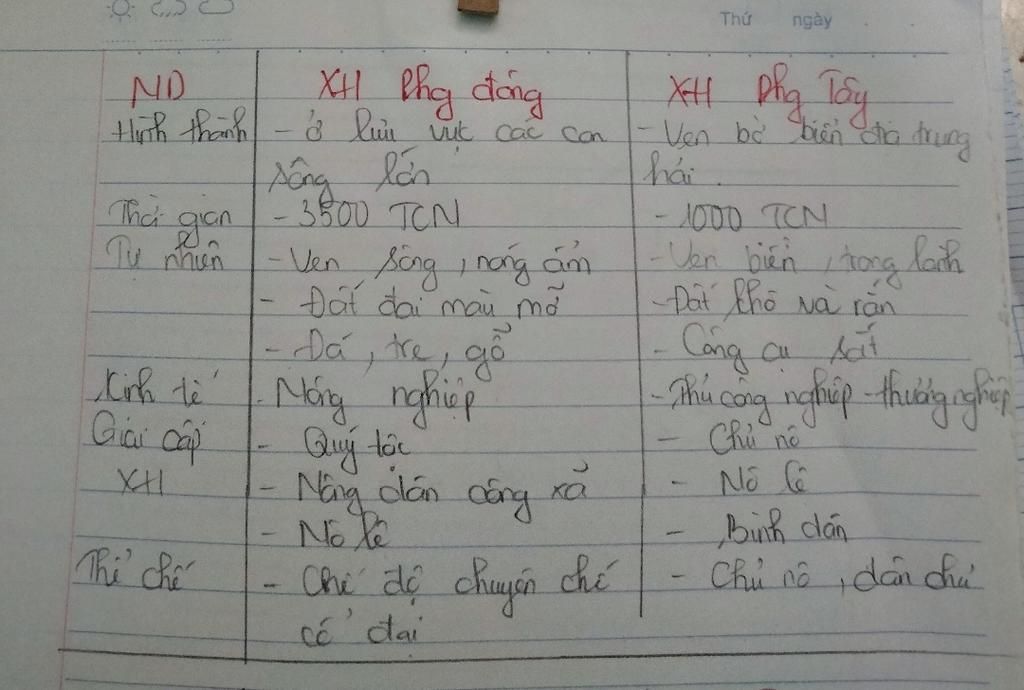 Thứ ngày
NĐ XH Phg đông XH Phg Tây
Hình thành - Ở lưu vực các con - Ven bờ biển địa trung
sông lớn hải.
Thời gian - 3500 TCN - 1000 TCN
Tự nhiên - Ven sông, nóng ẩm - Ven biển, trong lành
- Đất đai màu mỡ - Đất khô và rắn
- Đá, tre, gỗ - Công cụ sắt
Kinh tế - Nông nghiệp - Thủ công nghiệp - thương nghiệp
Giai cấp - Quý tộc - Chủ nô
XH - Nông dân công xã - Nô lệ
- Nô lệ - Bình dân
Thể chế - Chế độ chuyên chế - Chủ nô, dân chủ
cổ đại